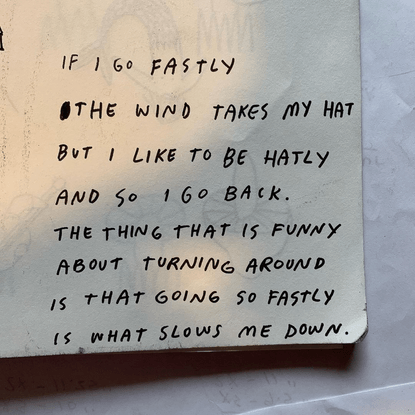 IF I GO FASTLY
THE WIND TAKES MY HAT
BUT I LIKE TO BE HATLY
AND SO I GO BACK.
THE THING THAT IS FUNNY
ABOUT TURNING AROUND
IS THAT GOING SO FASTLY
IS WHAT SLOWS ME DOWN.